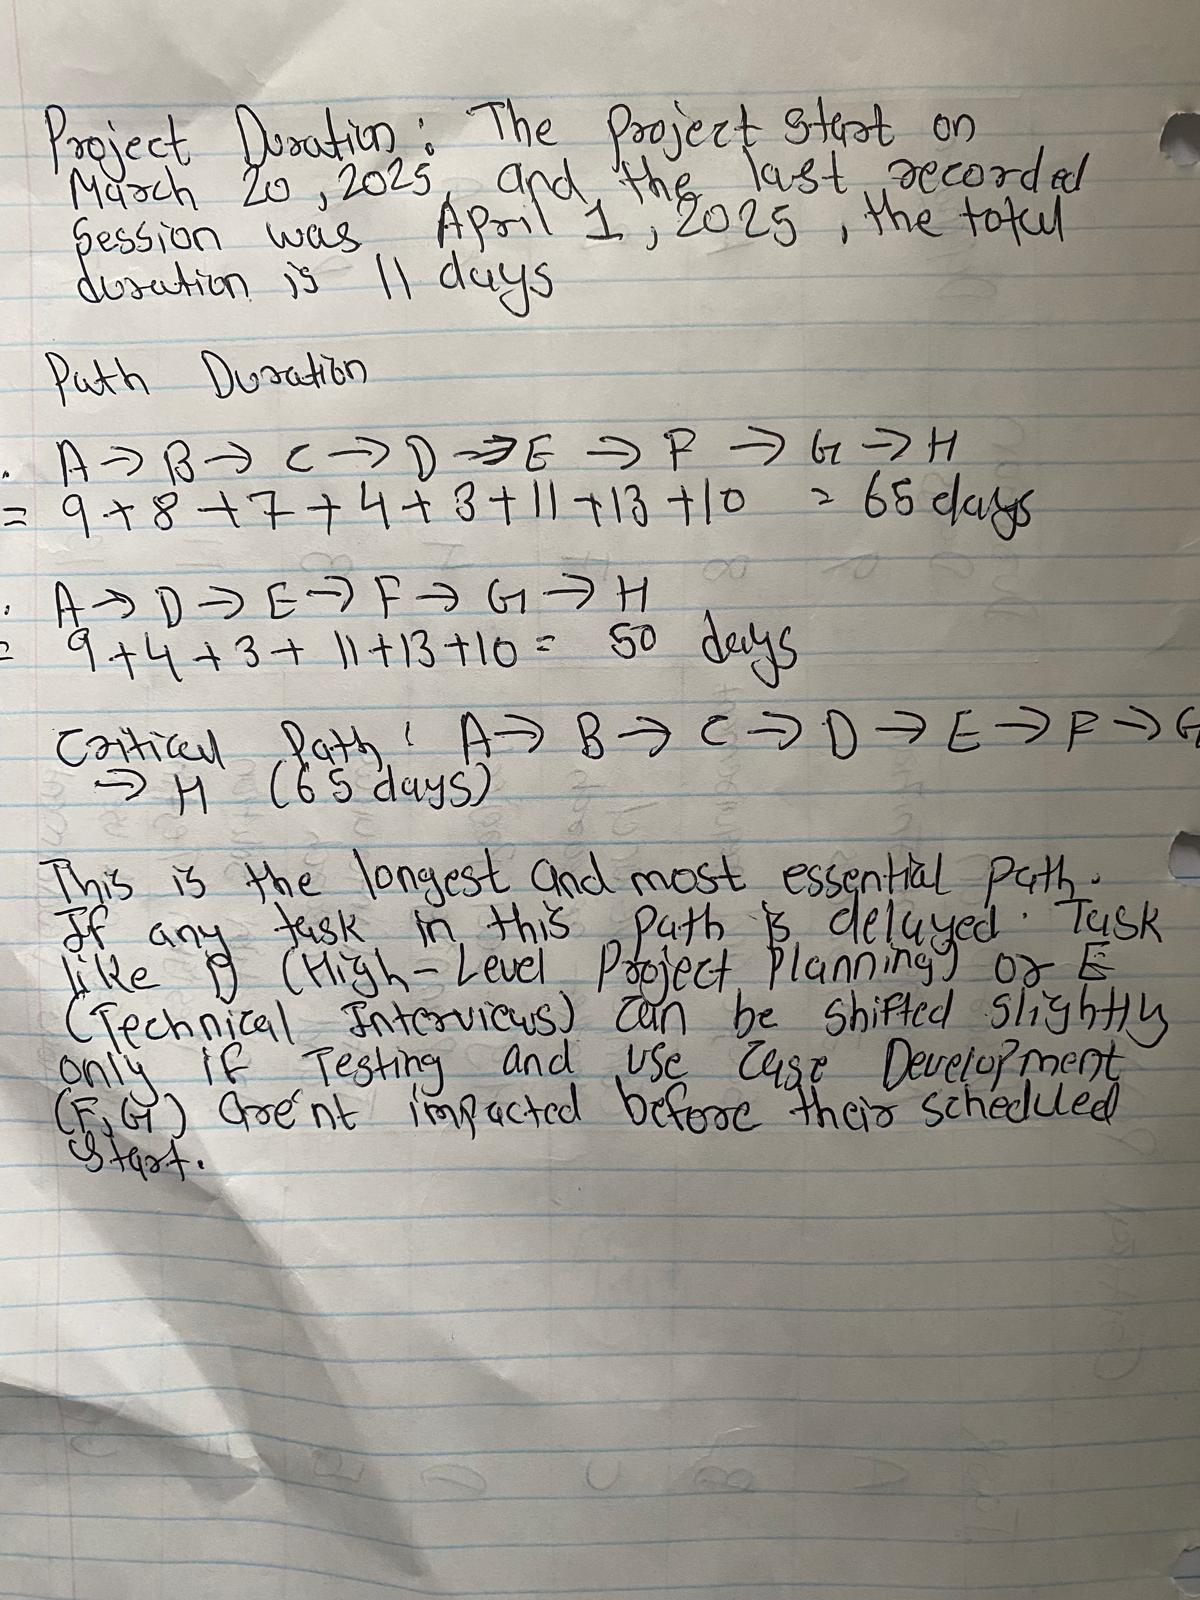 Project Duration: The project start on
March 20, 2025, and the last recorded
session was April 1, 2025, the total
duration is 11 days
Path Duration
. A → B → C → D → E → F → G → H
= 9 + 8 + 7 + 4 + 3 + 11 + 13 + 10 = 65 days
: A → D → E → F → G → H
= 9 + 4 + 3 + 11 + 13 + 10 = 50 days
Critical Path: A → B → C → D → E → F → G
→ H (65 days)
This is the longest and most essential path.
If any task in this path is delayed. Task
like D (High-Level Project Planning) or E
(Technical Interviews) can be shifted slightly
only if Testing and use case Development
(F, G) are'nt impacted before their scheduled
start.